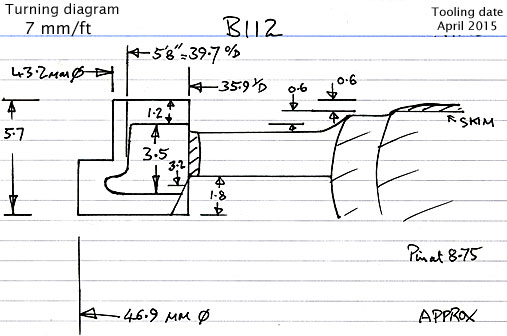 Turning diagram
7 mm/ft
B112
Tooling date
April 2015
5'8" = 39.7 O/D
43.2 MM Ø
35.9 I/D
0.6
0.6
1.2
5.7
3.5
3.2
SKIM
1.8
Pin at 8.75
46.9 MM Ø
APPROX